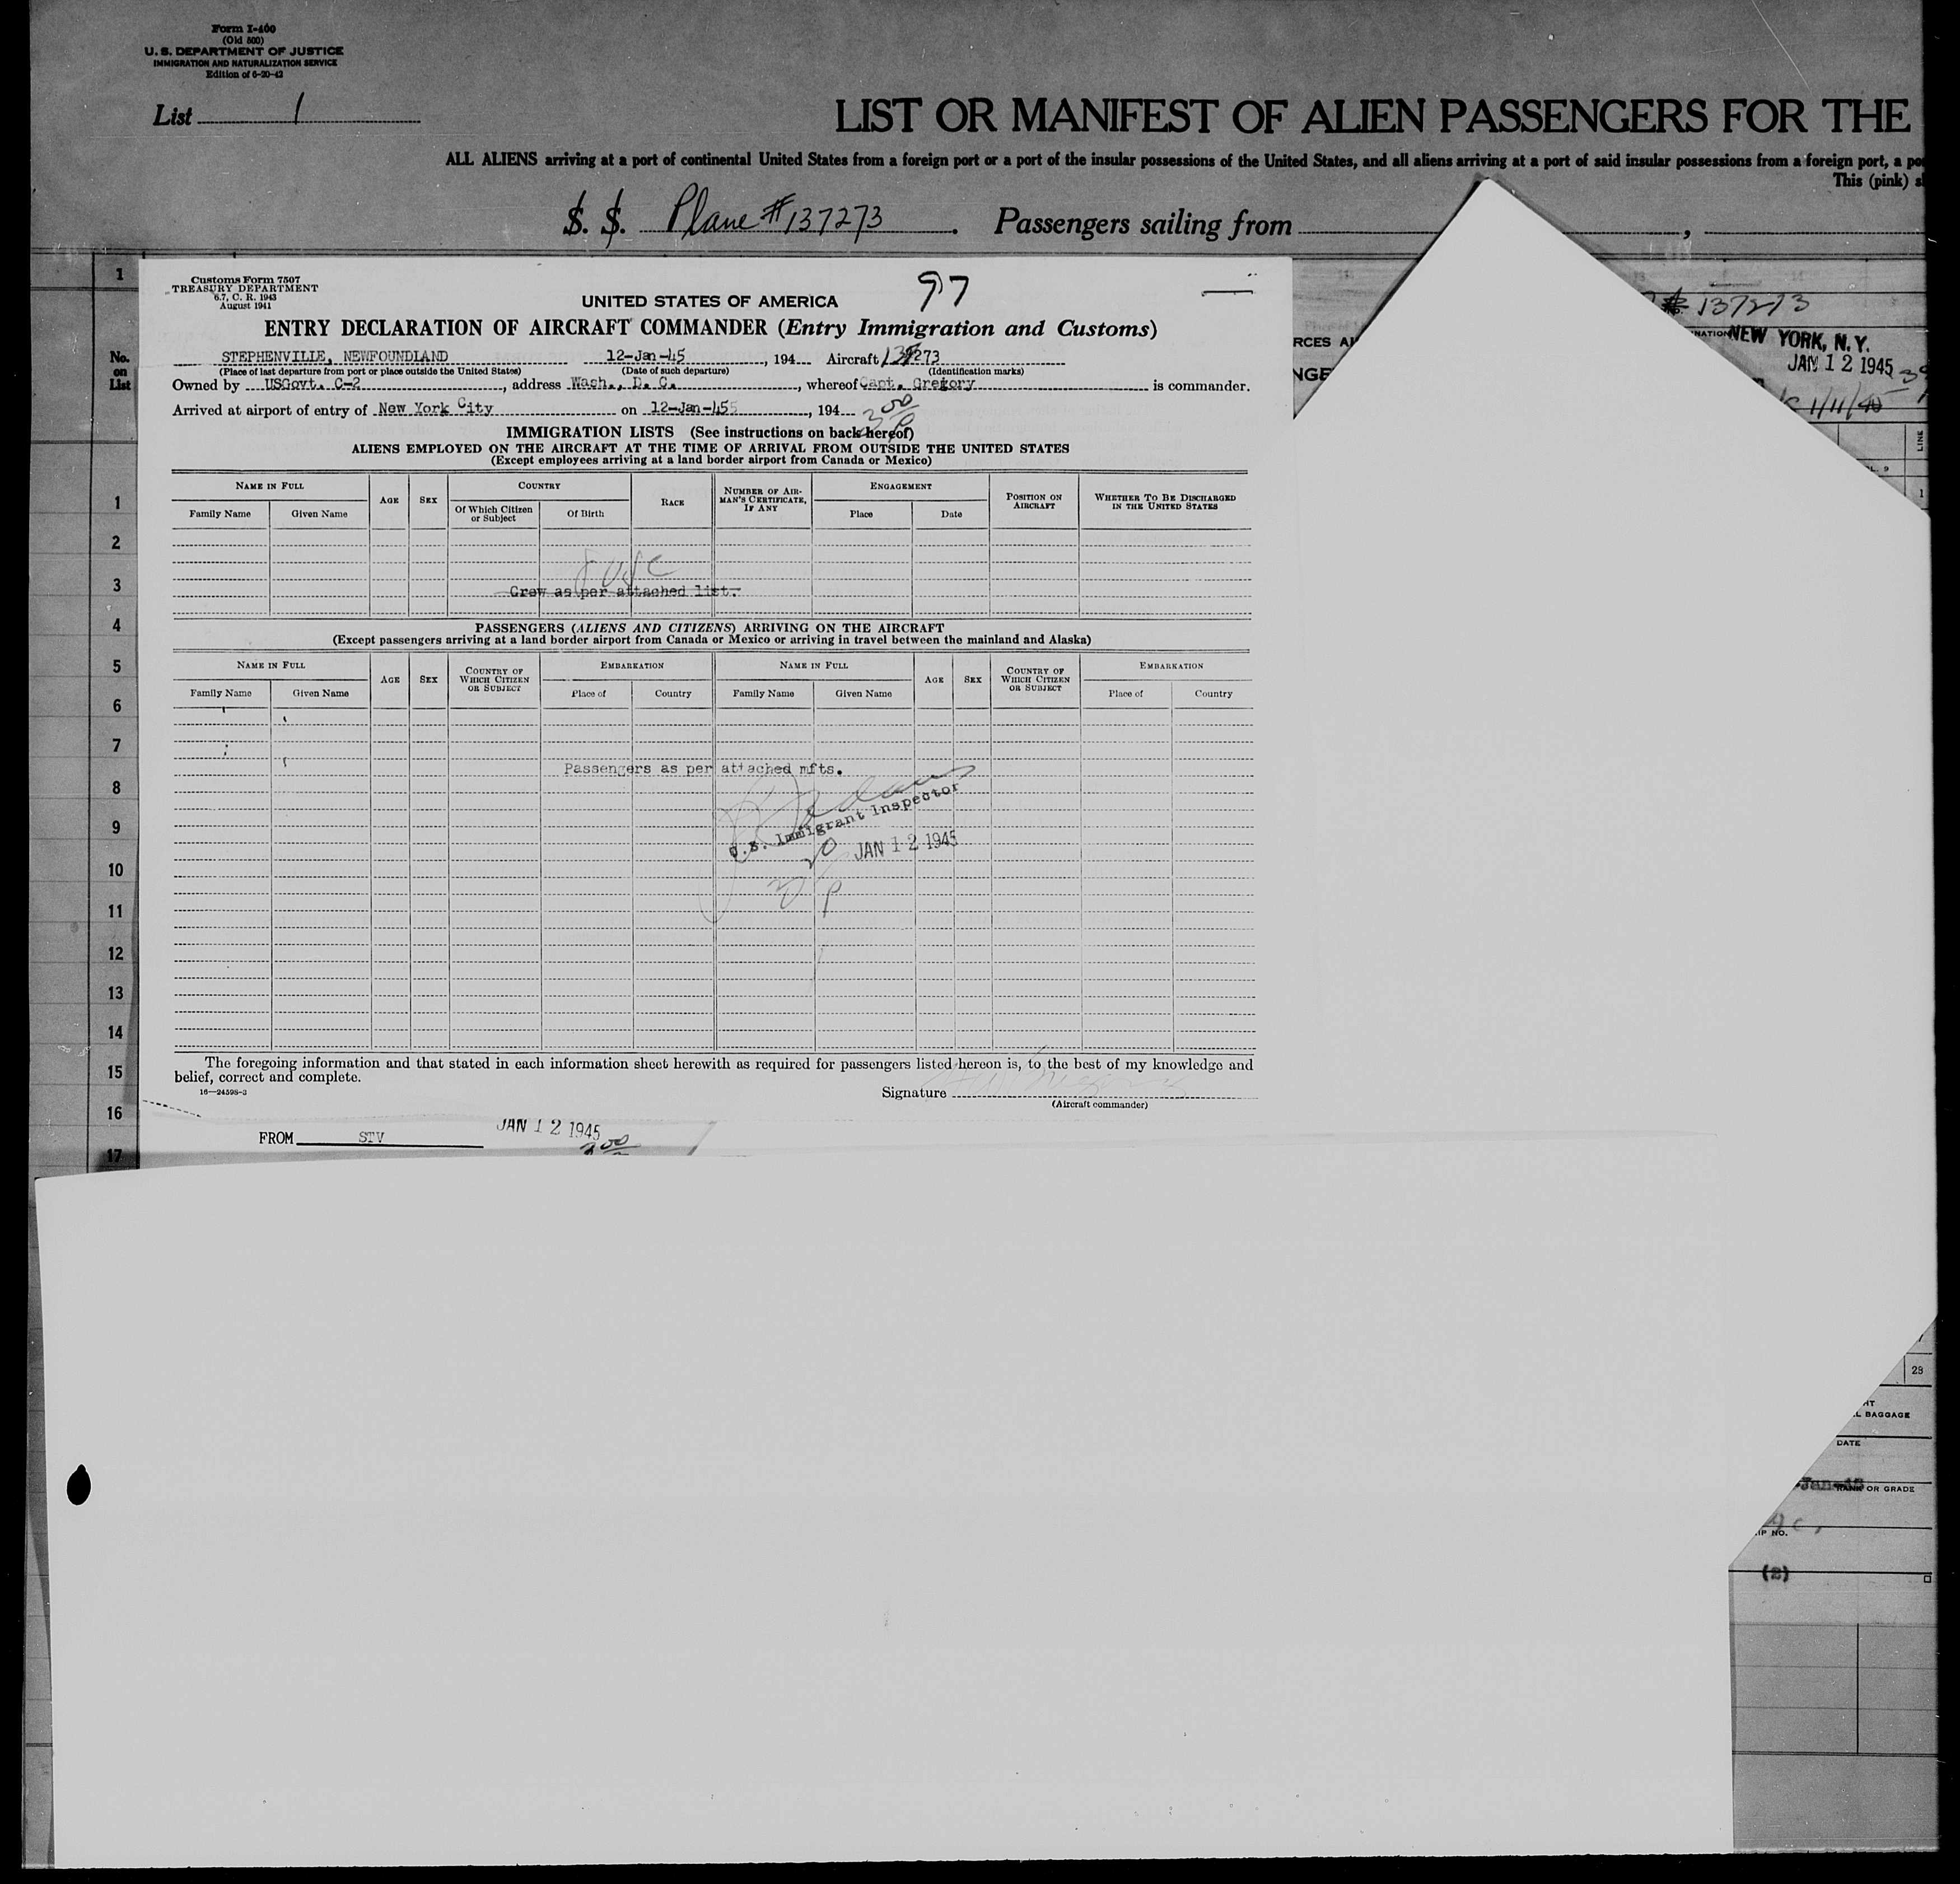 Form I-400
(Old 500)
U. S. DEPARTMENT OF JUSTICE
IMMIGRATION AND NATURALIZATION SERVICE
Edition of 6-20-42
List 1
LIST OR MANIFEST OF ALIEN PASSENGERS FOR THE
ALL ALIENS arriving at a port of continental United States from a foreign port or a port of the insular possessions of the United States, and all aliens arriving at a port of said insular possessions from a foreign port, a po
This (pink) s
S. S. Plane # 137273. Passengers sailing from ,
1
Customs Form 7507
TREASURY DEPARTMENT
6.7, C. R. 1943
August 1941
97
UNITED STATES OF AMERICA
ENTRY DECLARATION OF AIRCRAFT COMMANDER (Entry Immigration and Customs)
STEPHENVILLE, NEWFOUNDLAND 12-Jan-45, 194 Aircraft 137273
(Place of last departure from port or place outside the United States) (Date of such departure) (Identification marks)
Owned by USGovt. C-2, address Wash., D. C., whereof Capt. Gregory is commander.
Arrived at airport of entry of New York City on 12-Jan-45, 194
3 00 P
IMMIGRATION LISTS (See instructions on back hereof)
ALIENS EMPLOYED ON THE AIRCRAFT AT THE TIME OF ARRIVAL FROM OUTSIDE THE UNITED STATES
(Except employees arriving at a land border airport from Canada or Mexico)
NAME IN FULL AGE SEX COUNTRY RACE NUMBER OF AIRMAN'S CERTIFICATE, IF ANY ENGAGEMENT POSITION ON AIRCRAFT WHETHER TO BE DISCHARGED IN THE UNITED STATES
Family Name Given Name Of Which Citizen or Subject Of Birth Place Date
Crew as per attached list.
PASSENGERS (ALIENS AND CITIZENS) ARRIVING ON THE AIRCRAFT
(Except passengers arriving at a land border airport from Canada or Mexico or arriving in travel between the mainland and Alaska)
NAME IN FULL AGE SEX COUNTRY OF WHICH CITIZEN OR SUBJECT EMBARKATION NAME IN FULL AGE SEX COUNTRY OF WHICH CITIZEN OR SUBJECT EMBARKATION
Family Name Given Name Place of Country Family Name Given Name Place of Country
Passengers as per attached mfts.
U.S. Immigrant Inspector
JAN 12 1945
The foregoing information and that stated in each information sheet herewith as required for passengers listed hereon is, to the best of my knowledge and
belief, correct and complete.
16—24598-3
Signature
(Aircraft commander)
FROM STV JAN 12 1945
3 00
No.
on
List
1
2
3
4
5
6
7
8
9
10
11
12
13
14
15
16
17
# 137273
NEW YORK, N.Y.
JAN 12 1945
1/11/45
RCES AI
NGE
LINE
1
28
L BAGGAGE
DATE
RANK OR GRADE
IP NO.
(2)